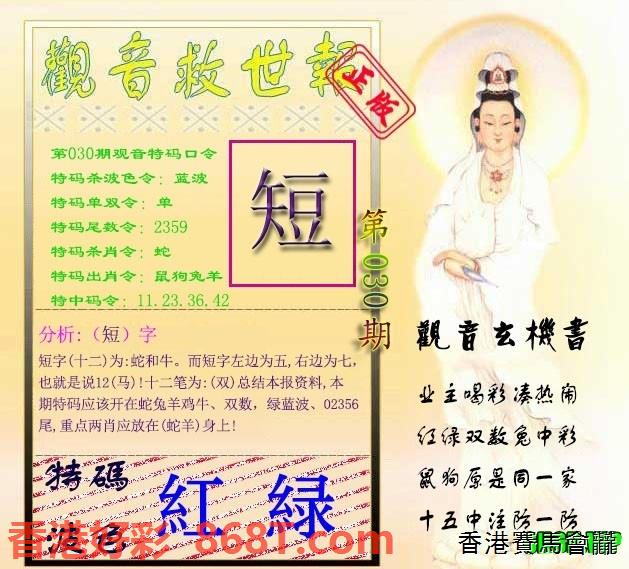 觀音救世報
正版
第030期观音特码口令
特码杀波色令：蓝波
特码单双令：单
特码尾数令：2359
特码杀肖令：蛇
特码出肖令：鼠狗兔羊
特中码令：11.23.36.42
短
第030期
分析:（短）字
短字(十二)为:蛇和牛。而短字左边为五,右边为七,
也就是说12(马)!十二笔为:(双)总结本报资料,本
期特码应该开在蛇兔羊鸡牛、双数，绿蓝波、02356
尾,重点两肖应放在(蛇羊)身上!
特碼
波色
紅 绿
觀音玄機書
业主喝彩凑热闹
红绿双数兔中彩
鼠狗原是同一家
十五中注防一防
香港好彩 868T.com
香港賽馬會